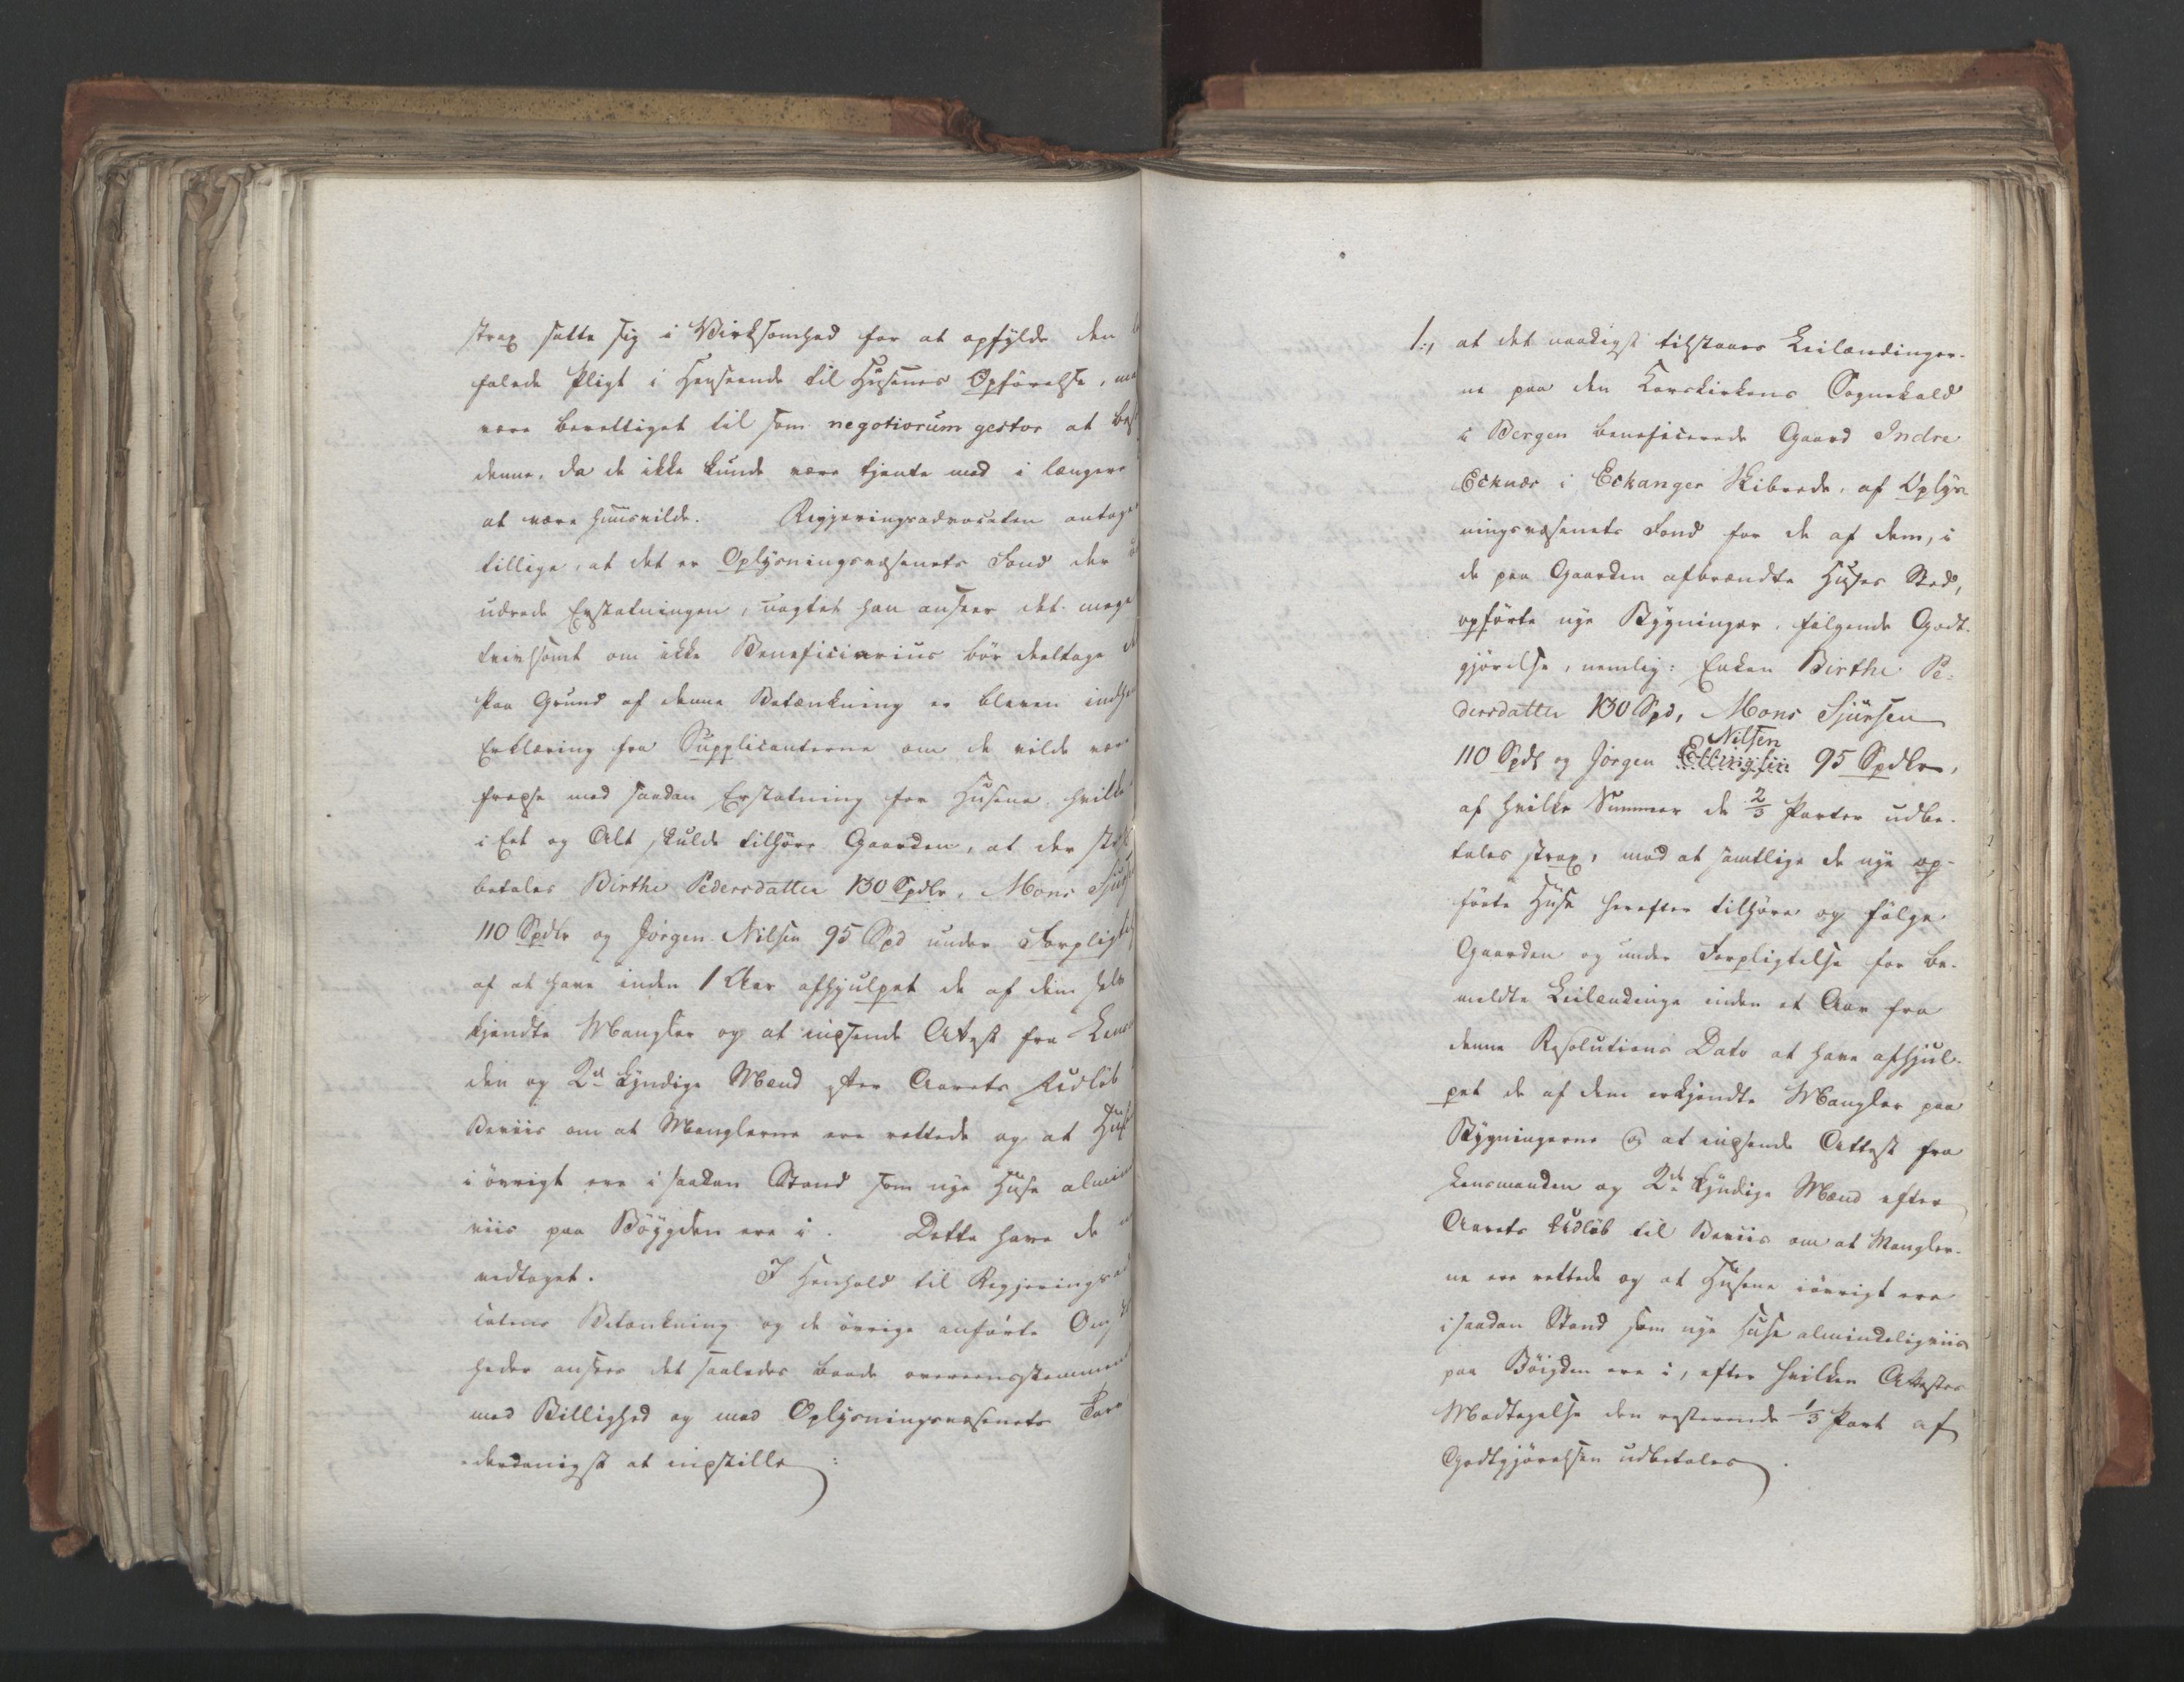 strax sætte sig i Virksomhed for at opfylde den
falede Pligt i Henseende til Husenes Opførelse,
være berettiget til som negotiorum gestor at
denne, da de ikke kunde være tjente med i længere
at være huusvilde. Regjeringsadvocaten antager
tillige, at det er Oplysningsvæsenets Fond der
udrede Erstatningen, uagtet han ansees det meget
tvivlsomt om ikke Beneficiarius bør deeltage
Paa Grund af denne Betænkning er bleven
Erklæring fra Supplicanterne om de vilde være
freds med saadan Erstatning for Husene, hvilke
i Eet og Alt skulde tilhøre Gaarden, at der
betales Birthe Pedersdatter 130 Spdlr, Mons
110 Spdlr og Jørgen Nilsen 95 Spd under
af at have inden 1 Aar afhjulpet de af dem selv
kjendte Mangler og at indsende Attest fra
den og 2de kyndige Mænd efter Aarets Udløb
Beviis om at Manglerne ere rettede og at
i øvrigt ere i saadan Stand som nye Huse
viis paa Bøygden ere i. Dette have de
vedtaget. I Henhold til
catens Betænkning og de øvrige anførte
heder ansees det saaledes baade overeensstemmende
med Billighed og med Oplysningsvæsenets
derdanigst at indstille:
1., at det naadigst tilstaaes Leilændinger-
ne paa den Korskirkens Sognekald
i Bergen beneficerede Gaard Indre
Ecknæs i Eckanger Skibrede, af Oplys-
ningsvæsenets Fond for de af dem, i
de paa Gaarden afbrændte Huses Sted,
opførte nye Bygninger, følgende Godt-
gjørelse, nemlig: Enken Birthe Pe-
dersdatter 130 Spd, Mons Sjursen
Nilsen
110 Spdl og Jørgen Ellingsen 95 Spdlr,
af hvilke Summer de 2/3 Parter udbe-
tales strax, mod at samtlige de nye op-
førte Huse herefter tilhøre og følge
Gaarden og under Forpligtelse for be-
meldte Leilændinge inden et Aar fra
denne Resolutions Dato at have afhjul-
pet de af dem erkjendte Mangler paa
Bygningerne og at indsende Attest fra
Lensmanden og 2de kyndige Mænd efter
Aarets Udløb til Beviis om at Mangler-
ne ere rettede og at Husene iøvrigt ere
i saadan Stand som nye Huse almindeligviis
paa Bøigden ere i, efter hvilken Attestes
Modtagelse den resterende 1/3 Part af
Godtgjørelsen udbetales.